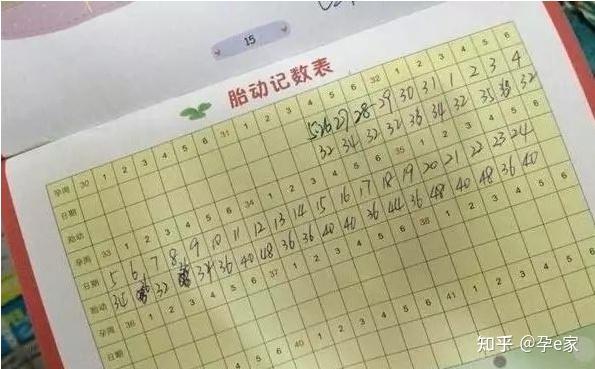 15
胎动记数表
孕周 30 1 2 3 4 5 6 31 1 2 3 4 5 6 32 1 2 3 4 5 6
日期 5.26 27 28 29 30 31 1 2 3 4
胎动 32 34 32 32 36 34 32 35 32
孕周 33 1 2 3 4 5 6 34 1 2 3 4 5 6 35 1 2 3 4 5 6
日期 5 6 7 8 9 10 11 12 13 14 15 16 17 18 19 20 21 22 23 24
胎动 34 32 34 36 40 48 36 36 40 40 36 44 36 48 40 48 36 40
孕周 36 1 2 3 4 5 6 1 2 3 4 5 6 38 1 2 3 4 5 6
日期
胎动
5 6 40 1 2 3 4 5 6 41 1 2 3 4
知乎 @孕e家